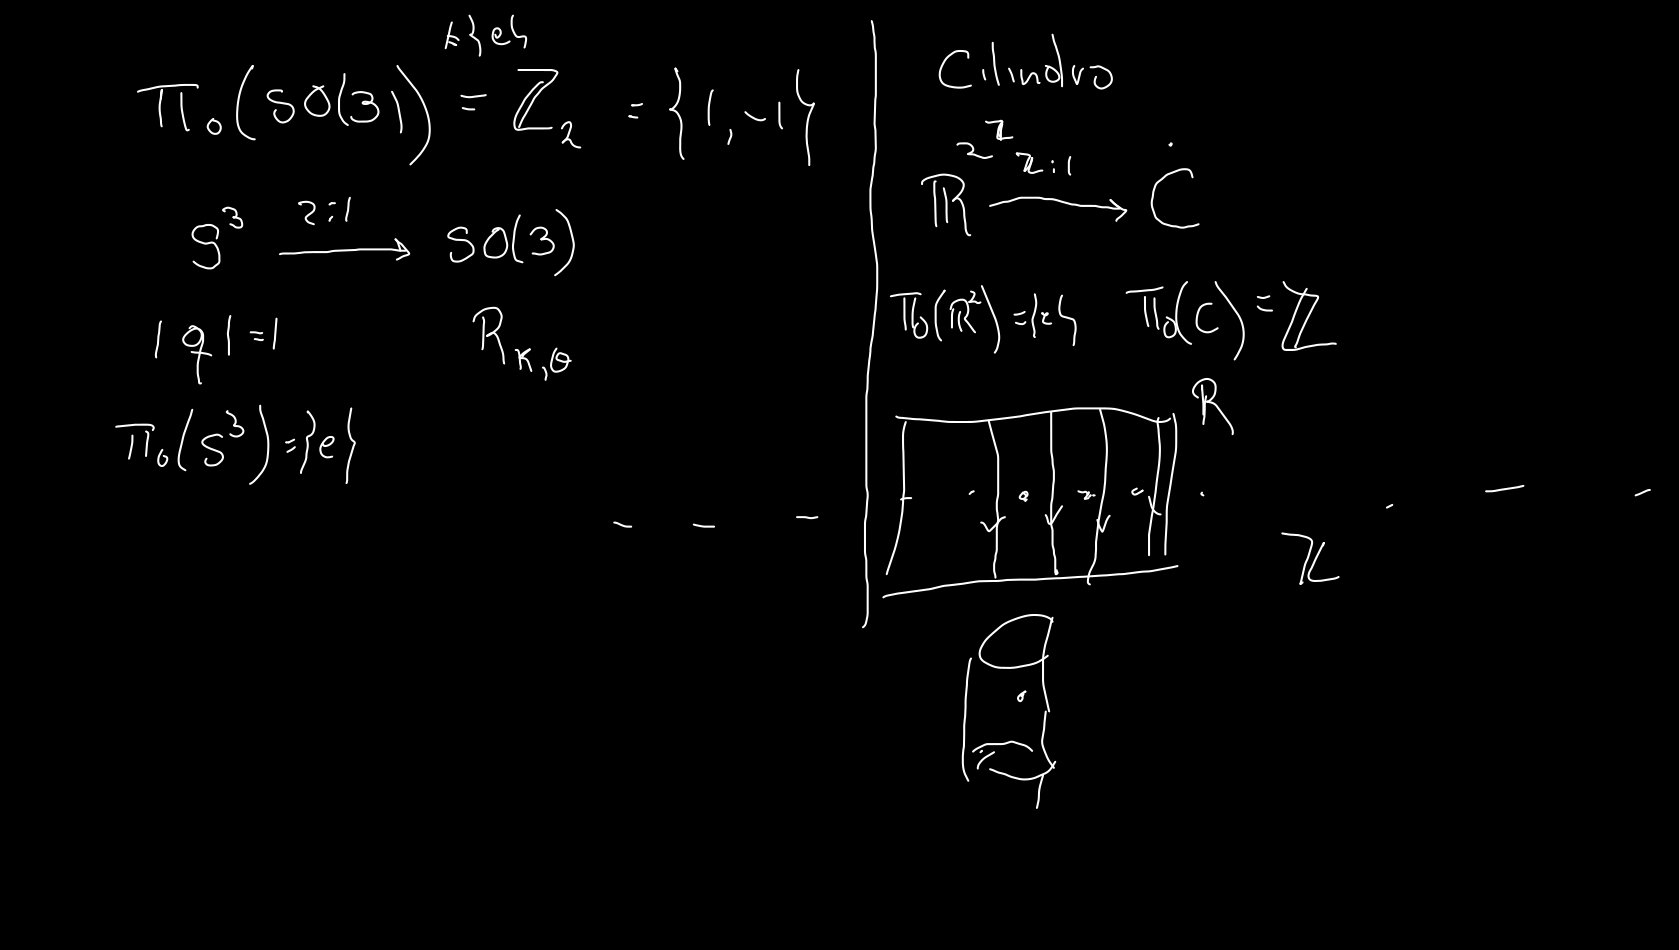 ≠{e}
Π₀(SO(3)) = ℤ₂ = {1, -1}
S³ 2:1 → SO(3)
|q| = 1 R_{K,θ}
Π₀(S³) = {e}
Cilindro
ℝ² ℤ:1 → C
Π₀(ℝ²) = {e} Π₀(C) = ℤ
ℝ
ℤ